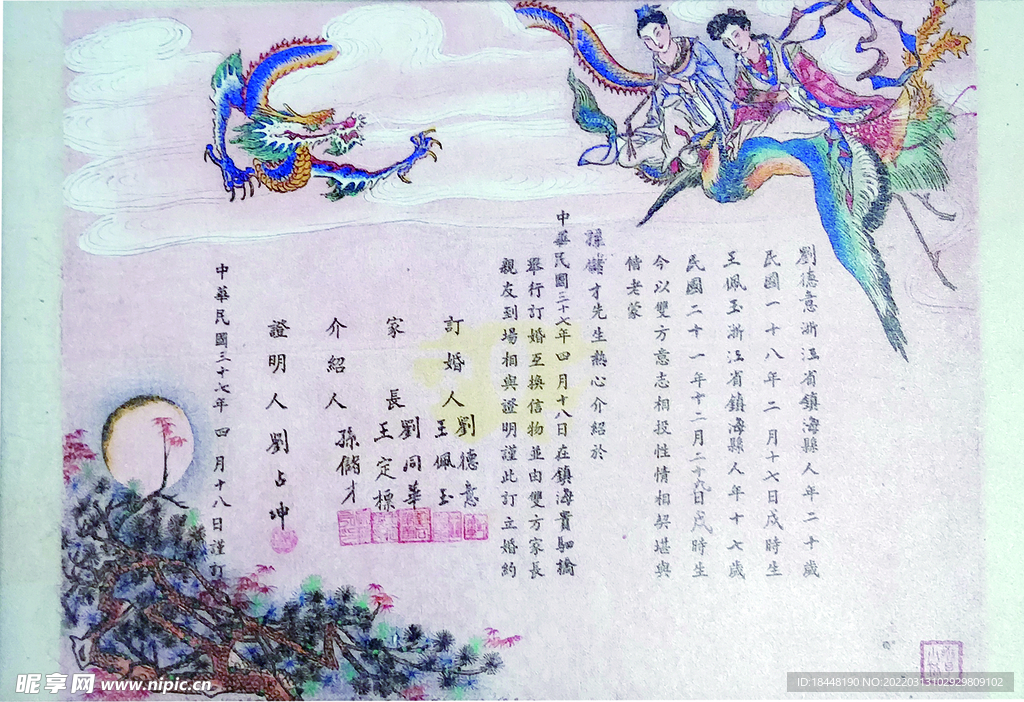 劉德意浙江省鎮海縣人年二十歲
民國一十八年二月十七日戌時生
王佩玉浙江省鎮海縣人年十七歲
民國二十一年十二月二十九日戌時生
今以雙方意志相投性情相契堪與
偕老蒙
孫儲才先生熱心介紹於
中華民國三十七年四月十八日在鎮海貴駟橋
舉行訂婚互換信物並由雙方家長
親友到場相與證明謹此訂立婚約
訂婚人 劉德意
王佩玉
家長 劉同華
王定標
介紹人 孫儲才
證明人 劉占坤
中華民國三十七年四月十八日謹訂
昵享网 www.nipic.cn
ID:18448190 NO:20220313102929809102